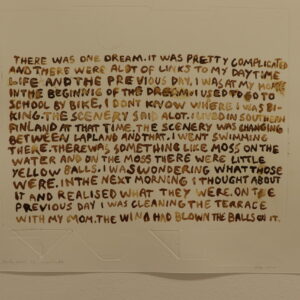 THERE WAS ONE DREAM. IT WAS PRETTY COMPLICATED
AND THERE WERE ALOT OF LINKS TO MY DAYTIME
LIFE AND THE PREVIOUS DAY. I WAS AT MY HOME
IN THE BEGINNIG OF THE DREAM. I USED TO GO TO
SCHOOL BY BIKE, I DONT KNOW WHERE I WAS BI-
KING. THE SCENERY SAID ALOT. I LIVED IN SOUTHERN
FINLAND AT THAT TIME. THE SCENERY WAS CHANGING
BETWEEN LAPLAND AND THAT. I WENT SWIMMING
THERE. THERE WAS SOMETHING LIKE MOSS ON THE
WATER AND ON THE MOSS THERE WERE LITTLE
YELLOW BALLS. I WAS WONDERING WHAT THOSE
WERE. IN THE NEXT MORNING I THOUGHT ABOUT
IT AND REALISED WHAT THEY WERE. ON THE
PREVIOUS DAY I WAS CLEANING THE TERRACE
WITH MY MOM. THE WIND HAD BLOWN THE BALLS ON IT.